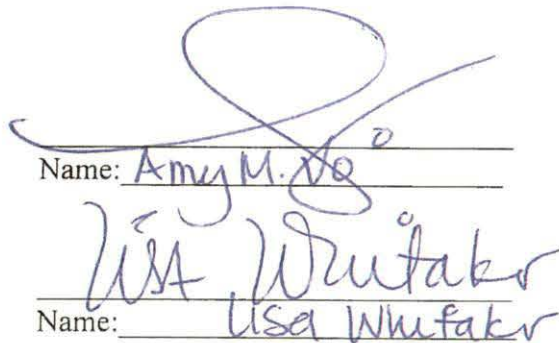 Name: Amy M. Vo
Lisa Whitaker
Name: Lisa Whitaker